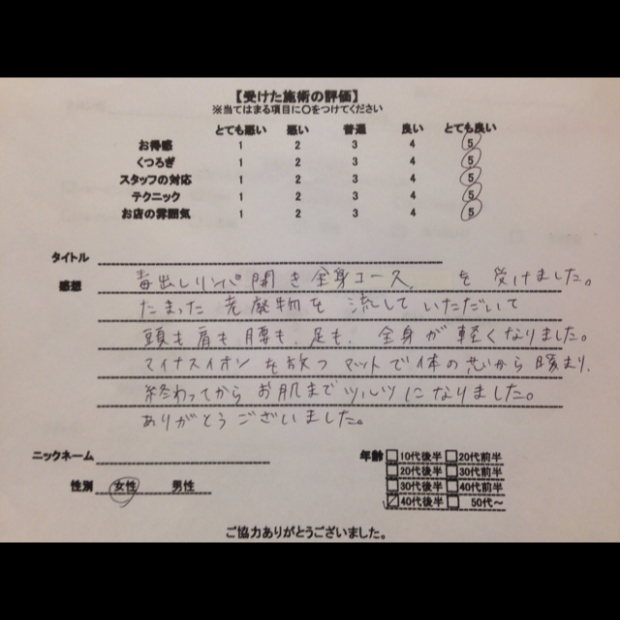 【受けた施術の評価】
※当てはまる項目に○をつけてください
とても悪い 悪い 普通 良い とても良い
お得感 1 2 3 4 5
くつろぎ 1 2 3 4 5
スタッフの対応 1 2 3 4 5
テクニック 1 2 3 4 5
お店の雰囲気 1 2 3 4 5
タイトル
感想 毒出しリンパ開き全身コース を受けました。
たまった老廃物を流していただいて
頭も肩も腰も、足も、全身が軽くなりました。
マイナスイオンを放つマットで体の芯から暖まり、
終わってからお肌までツルツルになりました。
ありがとうございました。
ニックネーム
性別 女性 男性
年齢 10代後半 20代前半
20代後半 30代前半
30代後半 40代前半
40代後半 50代～
ご協力ありがとうございました。